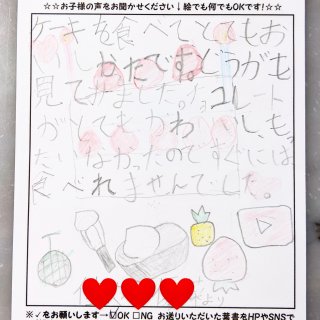 ☆☆お子様の声をお聞かせください↓絵でも何でもOKです！☆☆
ケーキを食べてとてもお
いしかたです。どうがも
見てみました。プレート
がとてもかわいいし、もっ
たいなかったのですぐには
食べれませんでした。
より
※✓をお願いします→☑OK □NG お送りいただいた葉書をHPやSNSで